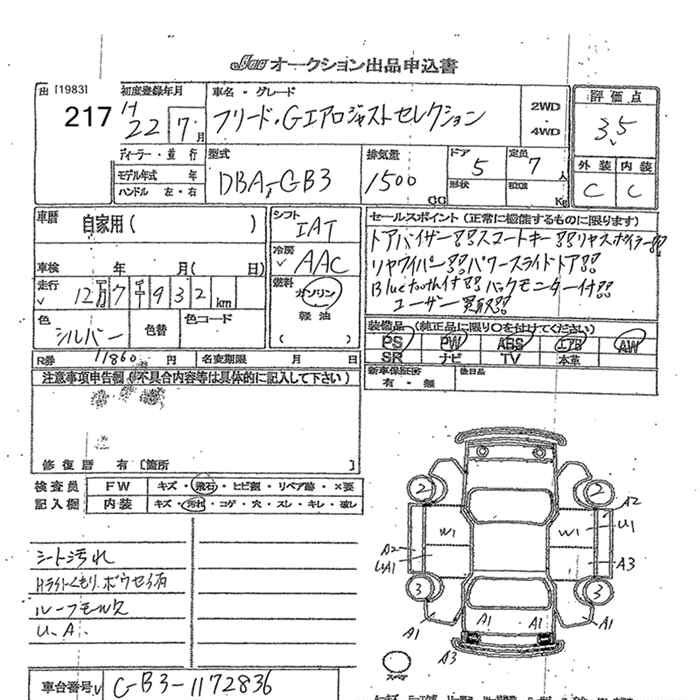 JAA オークション出品申込書
出 [1983] 217
初度登録年月 H22 7月
車名・グレード
フリード・Gエアロジャストセレクション
2WD
・
4WD
評価点
3.5
ディーラー・並行
モデル年式 年
ハンドル 左・右
型式
DBA-GB3
排気量
1500 CC
ドア 5
形状
定員 7人
積載 Kg
外装 内装
C C
車暦
自家用( )
シフト
IAT
車検 年 月(日)
冷房
AAC
走行 12万7千932km
燃料
ガソリン
軽油
( )
色
シルバー
色替
色コード
R券 11860円 名変期限 月 日
セールスポイント(正常に機能するものに限ります)
ドアバイザー!!スマートキー!!リヤスポイラー!!
リヤワイパー!!パワースライドドア!!
Bluetooth付!!バックモニター付!!
ユーザー買取!!
装備品(純正品に限り○を付けてください)
PS PW ABS エアB AW
SR ナビ TV 本革
新車保証書
有・無
後日品
注意事項申告欄(不具合内容等は具体的に記入して下さい)
修復暦 有[箇所 ]
検査員
記入欄
FW キズ・飛石・ヒビ割・リペア跡・×要
内装 キズ・汚れ・コゲ・穴・スレ・キレ・破レ
シート汚れ
Hライトくもり.ボウセイ有
ルーフモール欠
U.A.
車台番号 GB3-1172836
2 2
W1 W1
A2
U1
A2
A3
3 3
A1
A1 A1
A1
A3
スペア